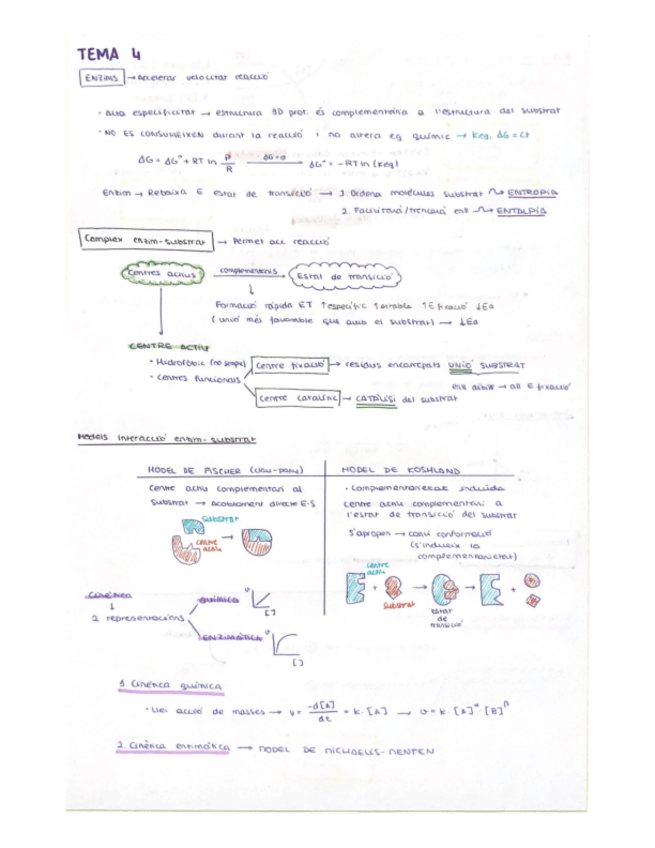 TEMA 4
ENZIMS → Accelerar velocitat reacció
· Alta especificitat → estructura 3D prot. és complementària a l'estructura del substrat
· NO ES CONSUMEIXEN durant la reacció i no altera eq químic → Keq, ΔG = ct
ΔG = ΔG° + RT ln P/R ΔG=0 → ΔG° = -RT ln (Keq)
Enzim → Rebaixa E estat de transició → 1. Ordena molècules substrat → ENTROPIA
2. enll → ENTALPIA
Complex enzim-substrat → Permet acc reacció
Centres actius complementaris → Estat de transició
Formació ràpida ET ↑específic ↑estable ↑E fixació ↓Ea
(unió més favorable que amb el substrat) → ↓Ea
CENTRE ACTIU
· Hidrofòbic (no sempre) Centre fixació → residus encarregats UNIÓ SUBSTRAT
· Centres funcionals enll dèbils → alt E fixació
Centre catalític → CATÀLISI del substrat
Models interacció enzim-substrat
MODEL DE FISCHER (clau-pany) MODEL DE KOSHLAND
Centre actiu complementari al · Complementarietat induïda
Substrat → Acoblament directe E-S centre actiu complementari a
l'estat de transició del substrat
Substrat S'apropen → canvi conformació
centre actiu (s'indueix la
complementarietat)
centre actiu
Substrat
estat de transició
Cinètica QUÍMICA v [ ]
2 representacions
ENZIMÀTICA v [ ]
1. Cinètica química
· Llei acció de masses → v = -d[A]/dt = k·[A] → v = k·[A]^α·[B]^β
2. Cinètica enzimàtica → MODEL DE MICHAELIS-MENTEN